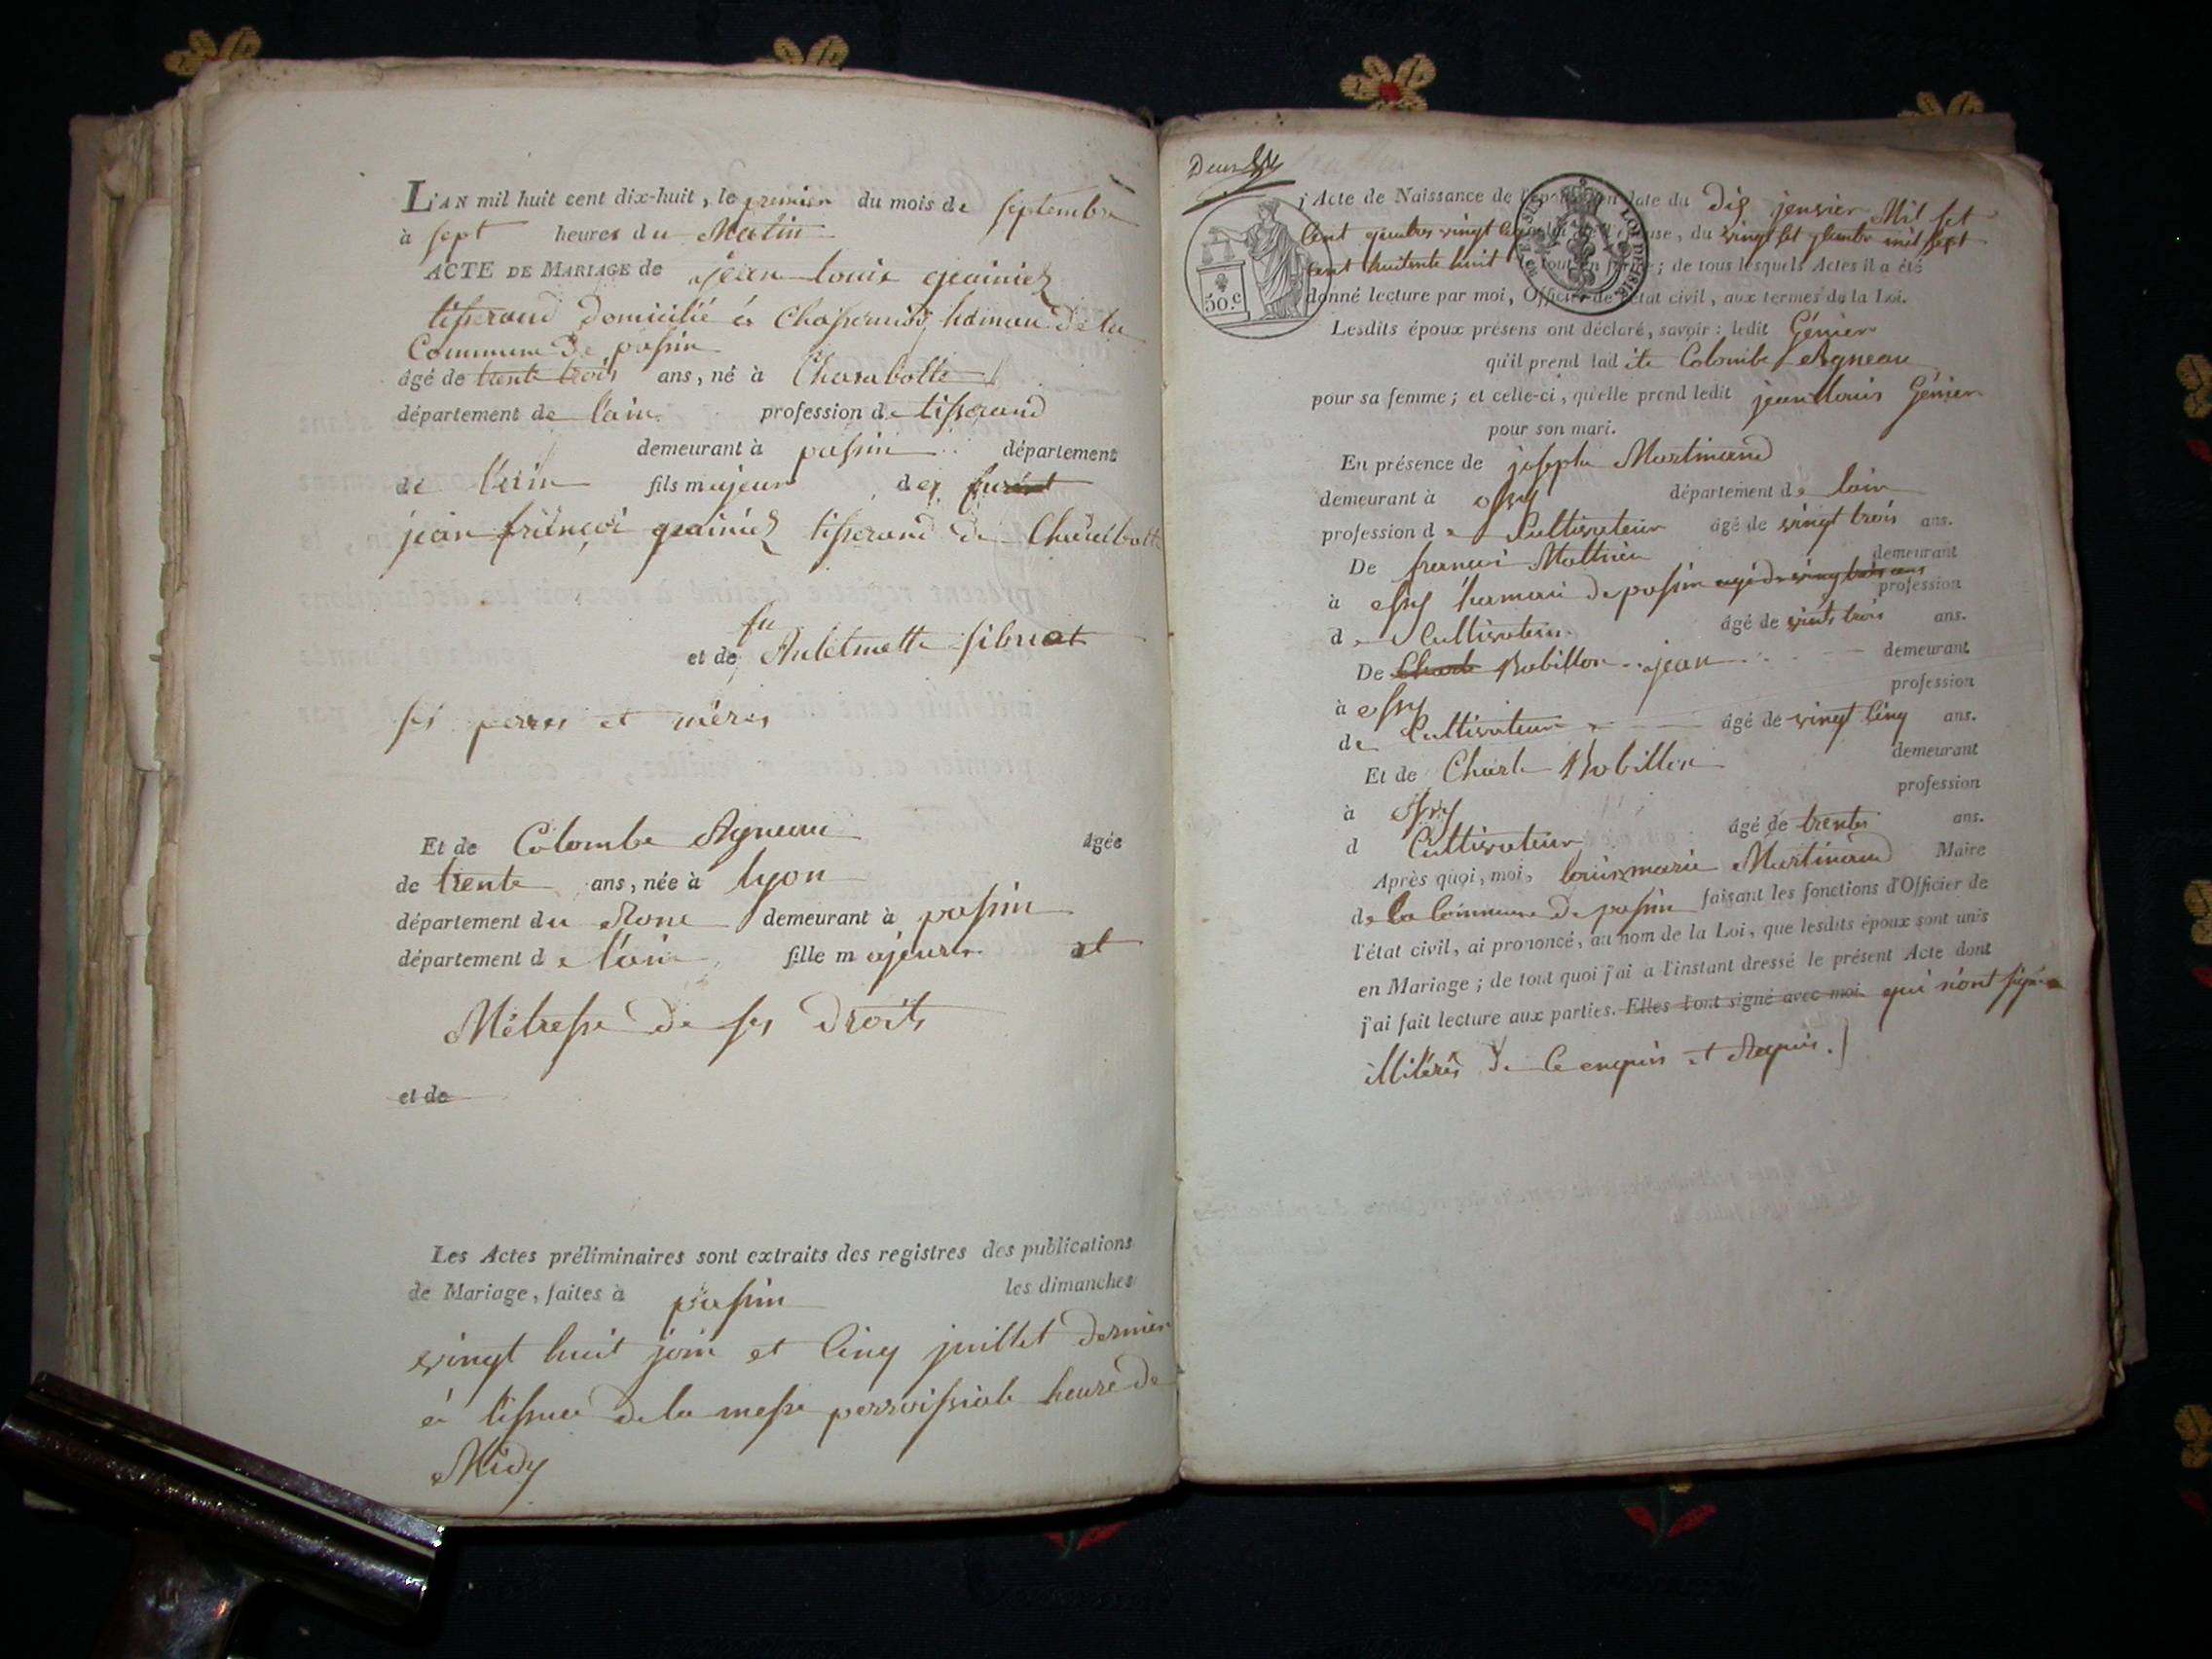 L'AN mil huit cent dix-huit, le premier du mois de septembre
à sept heures du Matin
ACTE DE MARIAGE de jean louis
tisserand domicilié à hamau de la
Commune de passin
âgé de trente trois ans, né à Charabotte
département de l'ain profession de tisserand
demeurant à passin département
de l'ain fils majeur de
jean françoi tisserand de Charabotte
fu
et de
ses perres et mères
Et de Colombe Agneau âgée
de trente ans, née à lyon
département du Rone demeurant à passin
département de l'ain fille majeure et
Métresse de ses droits
et de
Les Actes préliminaires sont extraits des registres des publications
de Mariage, faites à passin les dimanches
vingt huit join et Cinq juillet dernier
à lissue de la messe parroissiale heure de
Midy
Deux
j Acte de Naissance de l'époux en date du Dix jenvier Mil set
Cent quatre vingt use, du vingt set mil sept
Cent huitente huit le tout en forme; de tous lesquels Actes il a été
donné lecture par moi, Officier de l'état civil, aux termes de la Loi.
50.c
Lesdits époux présens ont déclaré, savoir: ledit Génier
qu'il prend ladite Colombe Agneau
pour sa femme; et celle-ci, qu'elle prend ledit jean louis Génier
pour son mari.
En présence de joseph Martinand
demeurant à département de lain
profession de Cultivateur âgé de vingt trois ans.
De françoi Mathieu demeurant
à hamau de passin agé de vingt trois ans profession
de Cultivateur âgé de vints trois ans.
De Charle Robillon jean demeurant
à profession
de Cultivateur âgé de vingt Cinq ans.
Et de Charle Robillon demeurant
à profession
d Cultivateur âgé de trente ans.
Après quoi, moi, louis marie Martinand Maire
de la Commune de passin faisant les fonctions d'Officier de
l'état civil, ai prononcé, au nom de la Loi, que lesdits époux sont unis
en Mariage; de tout quoi j'ai à l'instant dressé le présent Acte dont
j'ai fait lecture aux parties. Elles l'ont signé avec moi. qui n'ont signé
illiterés de Ce enquis et Requis.